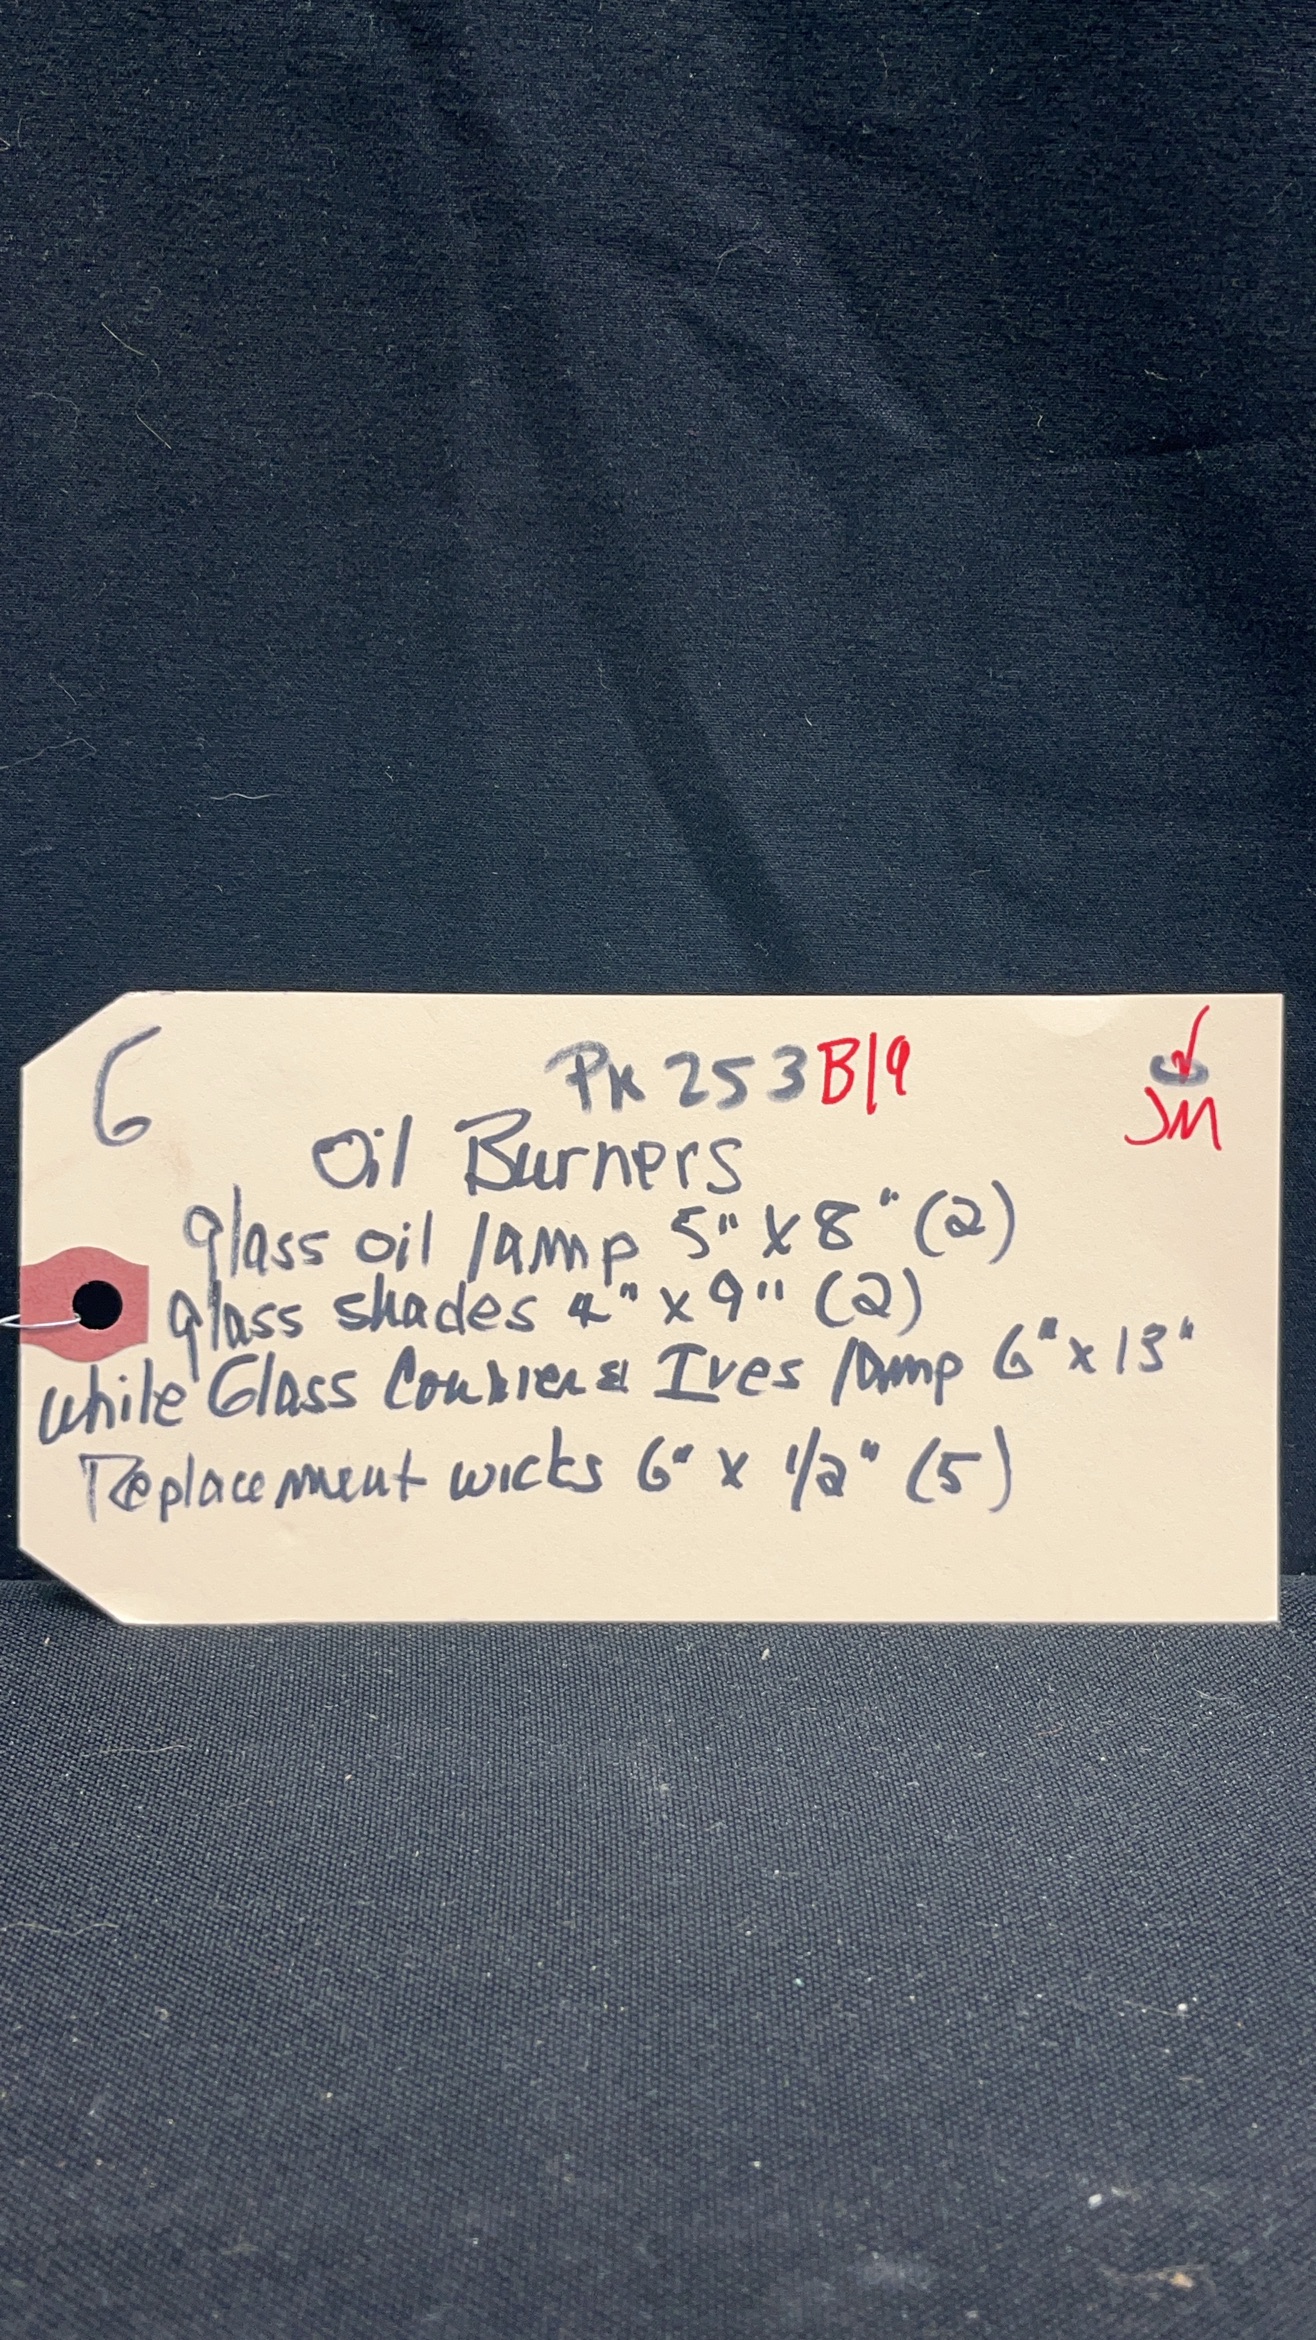 6 PK 253 B19
JM
Oil Burners
glass oil lamp 5" x 8" (2)
glass shades 4" x 9" (2)
while Glass & Ives lamp 6" x 13"
Replacement wicks 6" x 1/2" (5)